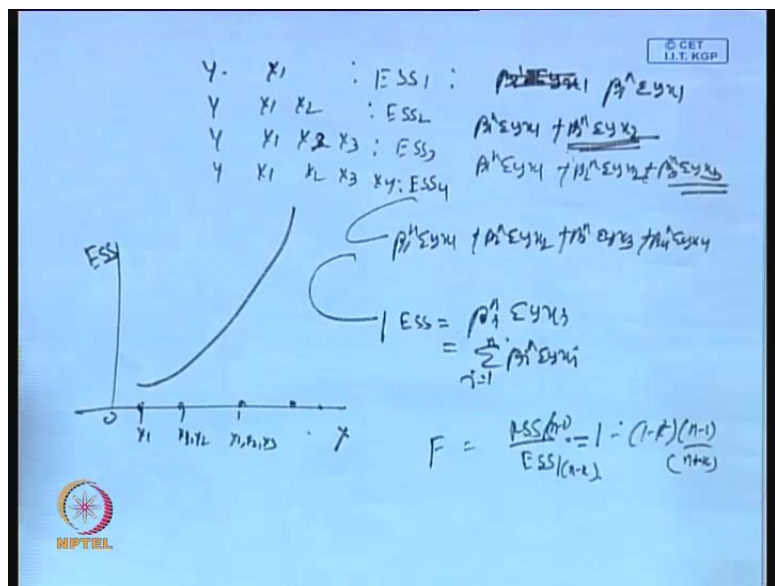 © CET
I.I.T. KGP
Y. X1 : ESS1 : β1^ Σyx1
Y X1 X2 : ESS2 β1^ Σyx1 + β2^ Σyx2
Y X1 X2 X3 : ESS3 β1^ Σyx1 + β2^ Σyx2 + β3^ Σyx3
Y X1 X2 X3 X4 : ESS4
β1^ Σyx1 + β2^ Σyx2 + β3^ Σyx3 + β4^ Σyx4
ESS
ESS =
= Σ βi^ Σyxi
i=1
0 X1 X1,X2 X1,X2,X3
F =
ESS/(n-k)
= 1 - (1-R²)(n-1)
NPTEL